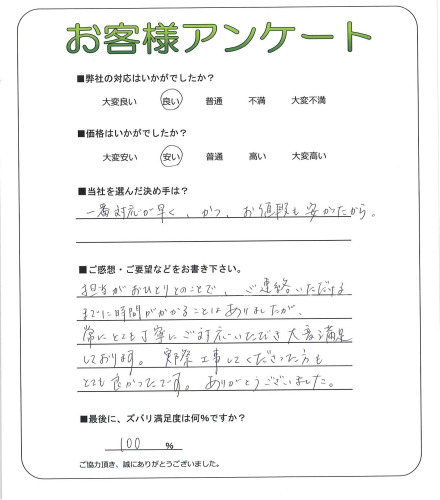 お客様アンケート
■弊社の対応はいかがでしたか?
大変良い 良い 普通 不満 大変不満
■価格はいかがでしたか?
大変安い 安い 普通 高い 大変高い
■当社を選んだ決め手は?
一番対応が早く、かつ、お値段も安かったから。
■ご感想・ご要望などをお書き下さい。
担当がおひとりとのことで、ご連絡いただける
までに時間がかかることはありましたが、
常にとても丁寧にご対応いただき大変満足
しております。実際工事してくださった方も
とても良かったです。ありがとうございました。
■最後に、ズバリ満足度は何%ですか?
100 %
ご協力頂き、誠にありがとうございました。